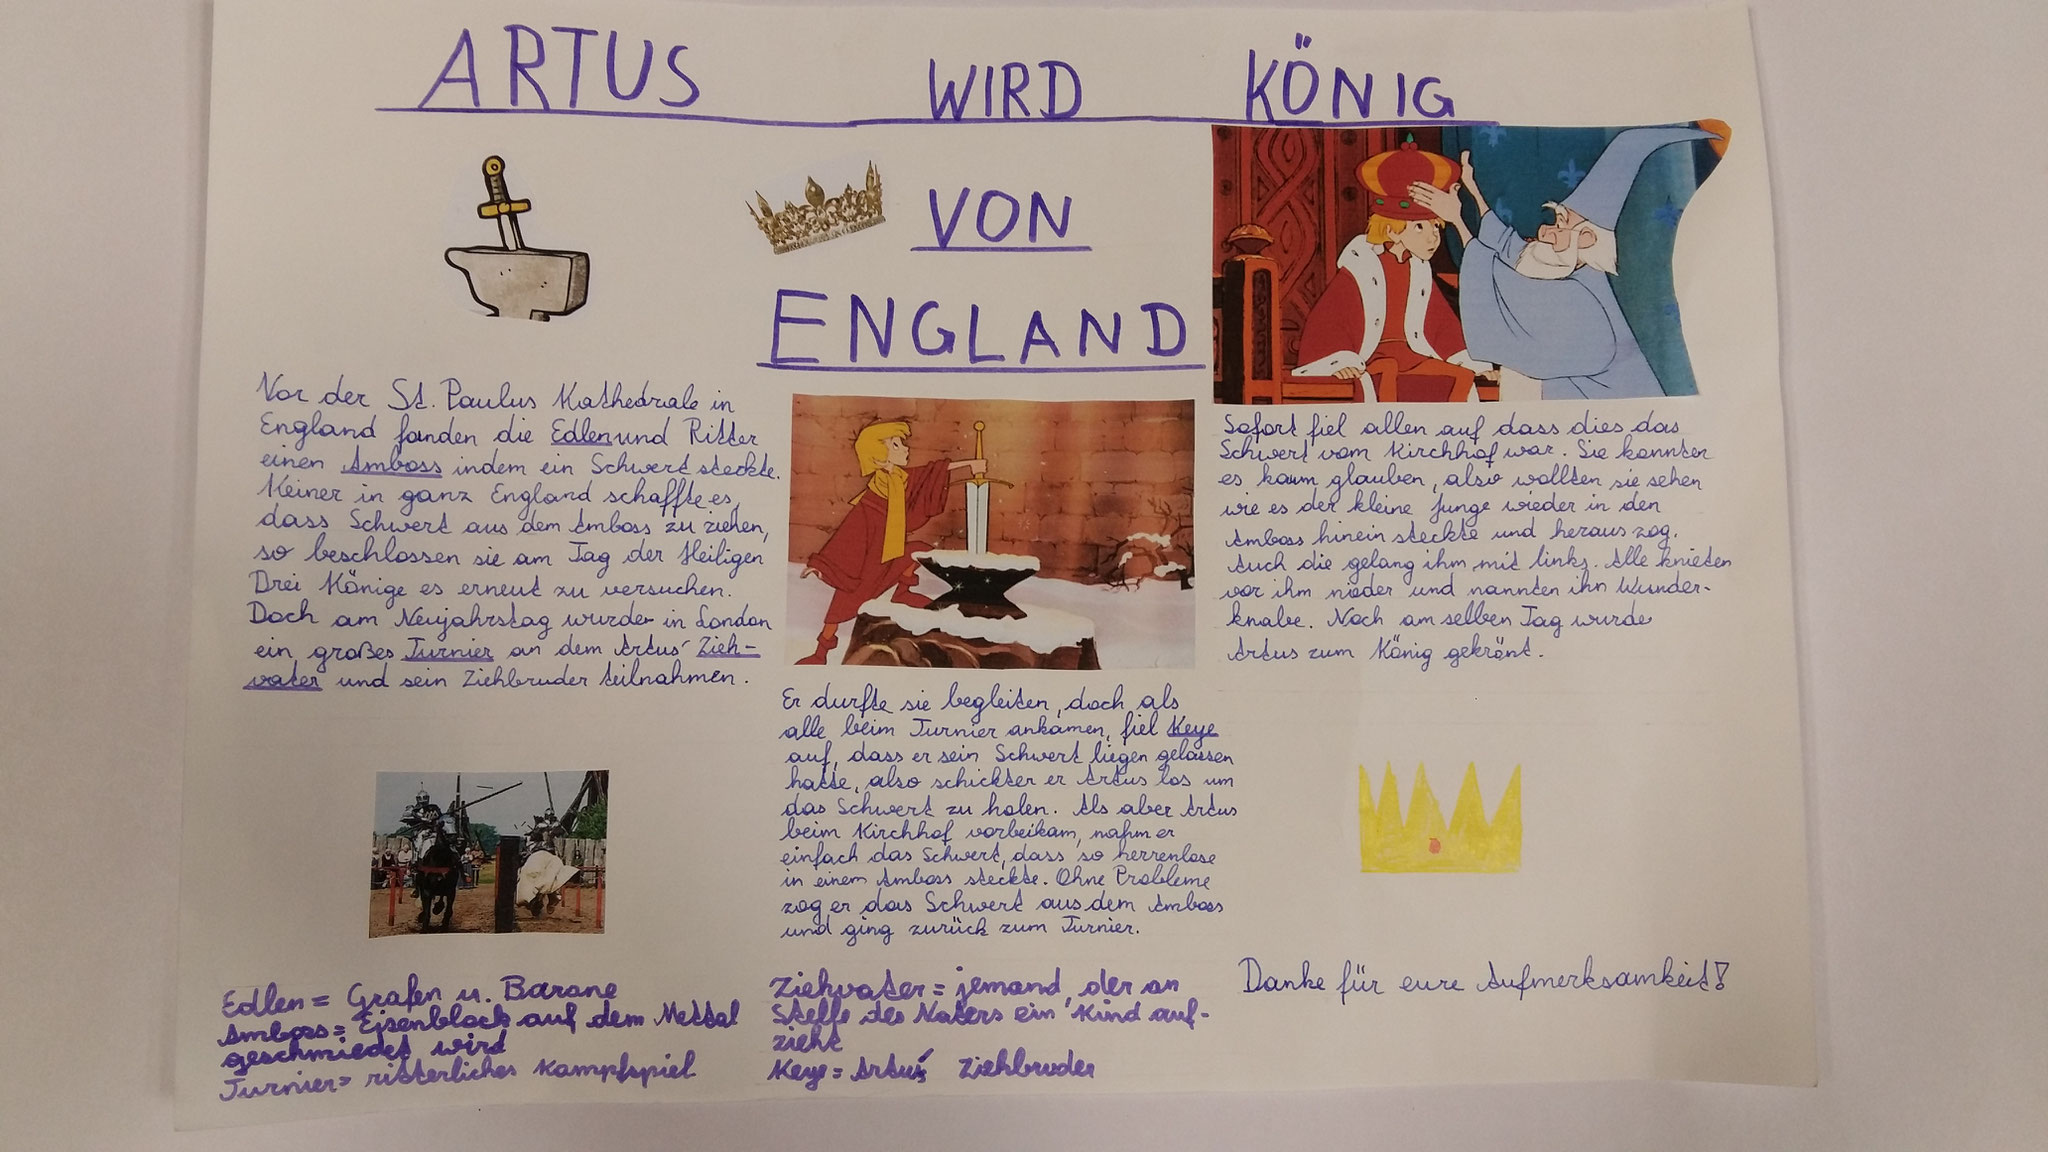 ARTUS WIRD KÖNIG
VON
ENGLAND
Vor der St. Paulus Kathedrale in
England fanden die Edlen und Ritter
einen Amboss indem ein Schwert steckte.
Keiner in ganz England schaffte es,
dass Schwert aus dem Amboss zu ziehen,
so beschlossen sie am Tag der Heiligen
Drei Könige es erneut zu versuchen.
Doch am Neujahrstag wurde in London
ein großes Turnier an dem Artus´ Zieh-
vater und sein Ziehbruder teilnahmen.
Er durfte sie begleiten, doch als
alle beim Turnier ankamen, fiel Keye
auf, dass er sein Schwert liegen gelassen
hatte, also schickter er Artus los um
das Schwert zu holen. Als aber Artus
beim Kirchhof vorbeikam, nahm er
einfach das Schwert, dass so herrenlose
in einem Amboss steckte. Ohne Probleme
zog er das Schwert aus dem Amboss
und ging zurück zum Turnier.
Sofort fiel allen auf dass dies das
Schwert vom Kirchhof war. Sie konnten
es kaum glauben, also wollten sie sehen
wie es der kleine Junge wieder in den
Amboss hinein steckte und heraus zog.
Auch die gelang ihm mit links. Alle knieten
vor ihm nieder und nannten ihn Wunder-
knabe. Noch am selben Tag wurde
Artus zum König gekrönt.
Edlen = Grafen u. Barone
Amboss = Eisenblock auf dem Mettal
geschmiedet wird
Turnier = ritterliches Kampfspiel
Ziehvater = jemand, der an
Stelle des Vaters ein Kind auf-
zieht
Keye = Artus´ Ziehbruder
Danke für eure Aufmerksamkeit!